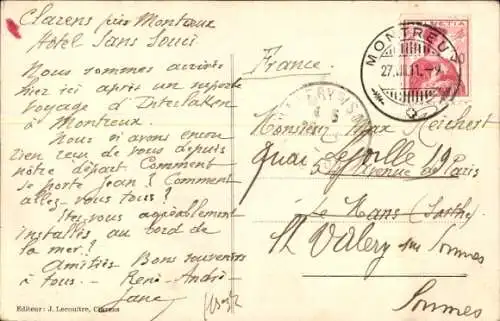 Clarens près Montreux
Hôtel Sans Souci
Nous sommes arrivés
hier ici après un superbe
voyage d'Interlaken
à Montreux.
Nous n'avons encore
rien reçu de vous depuis
notre départ Comment
se porte Jean? Comment
allez-vous tous?
Etes vous agréablement
installés au bord de
la mer?
Amitiés Bons souvenirs
à tous — René-André-
Jane
Editeur: J. Lecoultre, Clarens
HELVETIA
10
MONTREUX
27.
France.
Monsieur Max Reichert
Quai 19
5 Avenue de Paris
Le Mans (Sarthe)
St Valery sur Somme
Somme